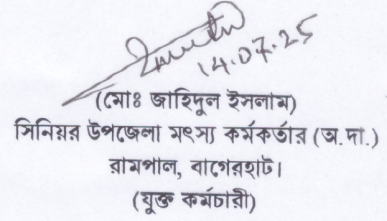 14.07.25
(মোঃ জাহিদুল ইসলাম)
সিনিয়র উপজেলা মৎস্য কর্মকর্তার (অ.দা.)
রামপাল, বাগেরহাট।
(যুক্ত কর্মচারী)